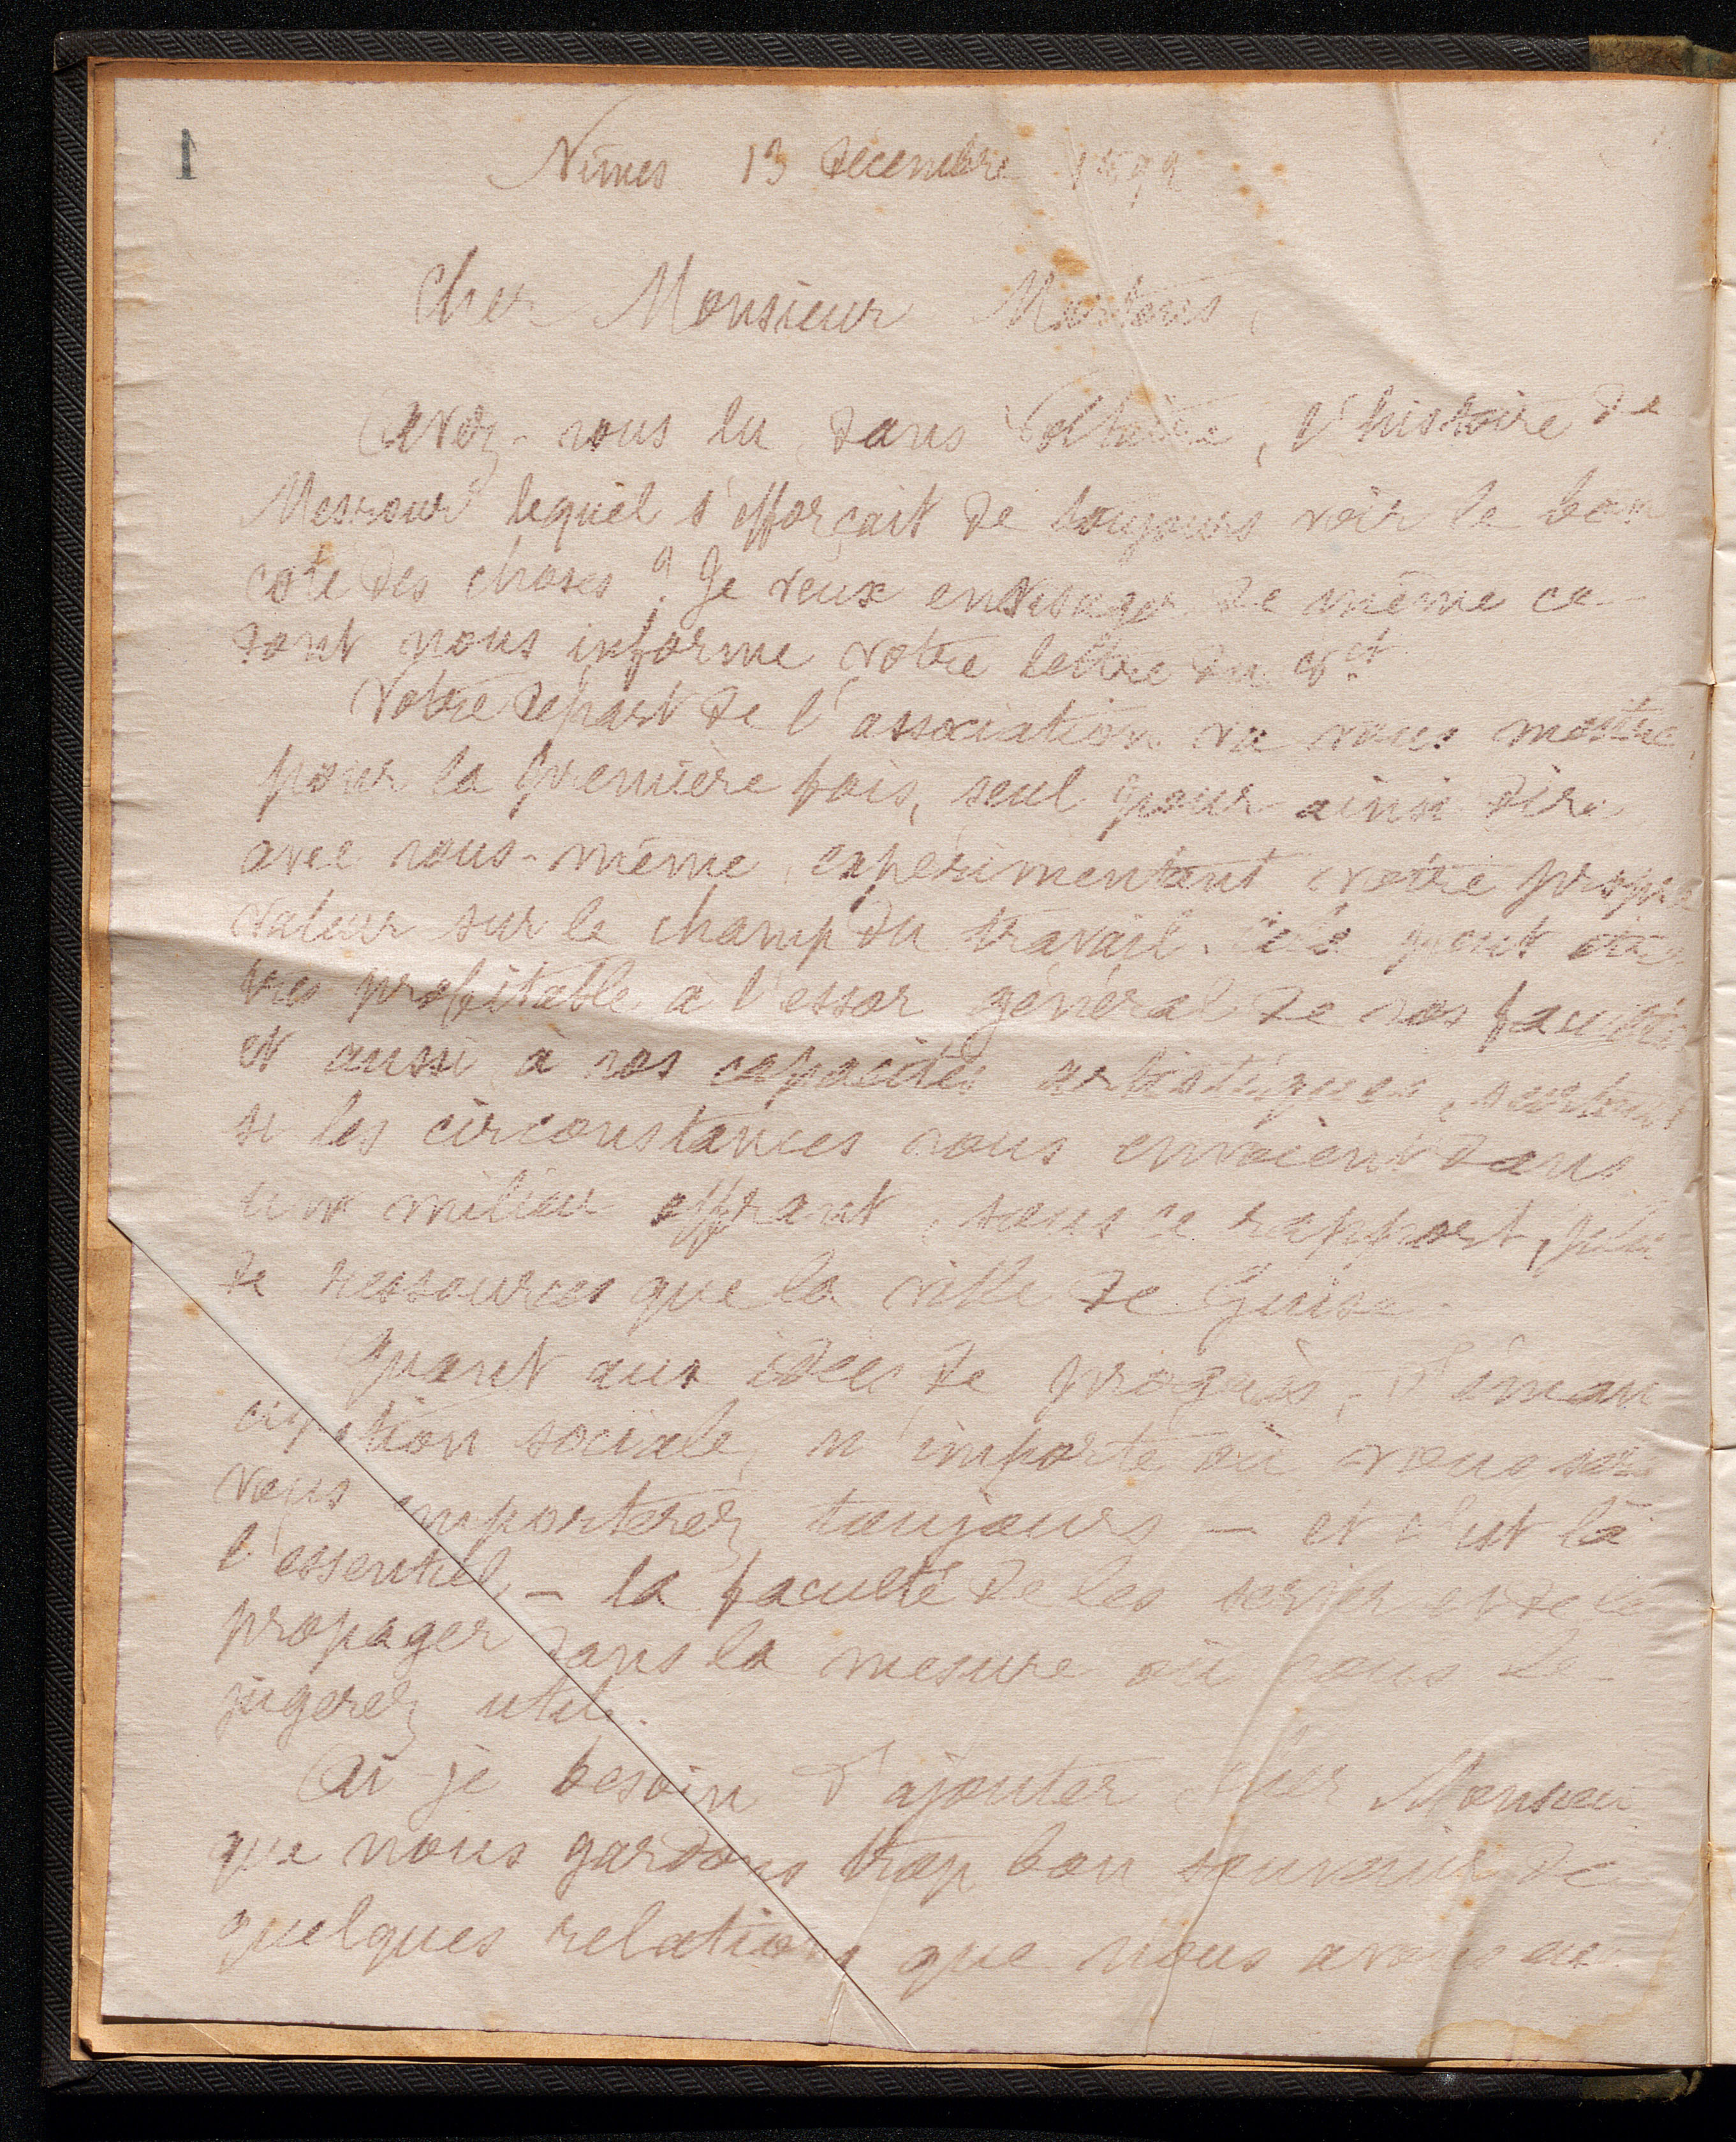 1
Nimes 13 Décembre
Cher Monsieur
Avez-vous lu dans Voltaire, l'histoire de
Mesrour lequel s'efforçait de toujours voir le bon
côté des choses? Je veux envisager de même ce
dont nous informe votre lettre du ct
Votre départ de l'association va vous mettre,
pour la première fois, seul pour ainsi dire
avec vous-même, expérimentant votre propre
valeur sur le champ du travail. Cela peut être
très profitable à l'essor général de vos facultés
et aussi à vos capacités artistiques, surtout
si les circonstances vous envoient dans
un milieu offrant, sous ce rapport, plus
de ressources que la ville de Guise.
Quant aux idées de progrès, d'éman
cipation sociale, n'importe où vous
vous emporterez toujours - et c'est là
l'essentiel, - la faculté de les servir et de les
propager dans la mesure où vous le
jugerez utile.
Ai-je besoin d'ajouter cher Monsieur
que nous gardons trop bon souvenir de
quelques relations que nous avons eu